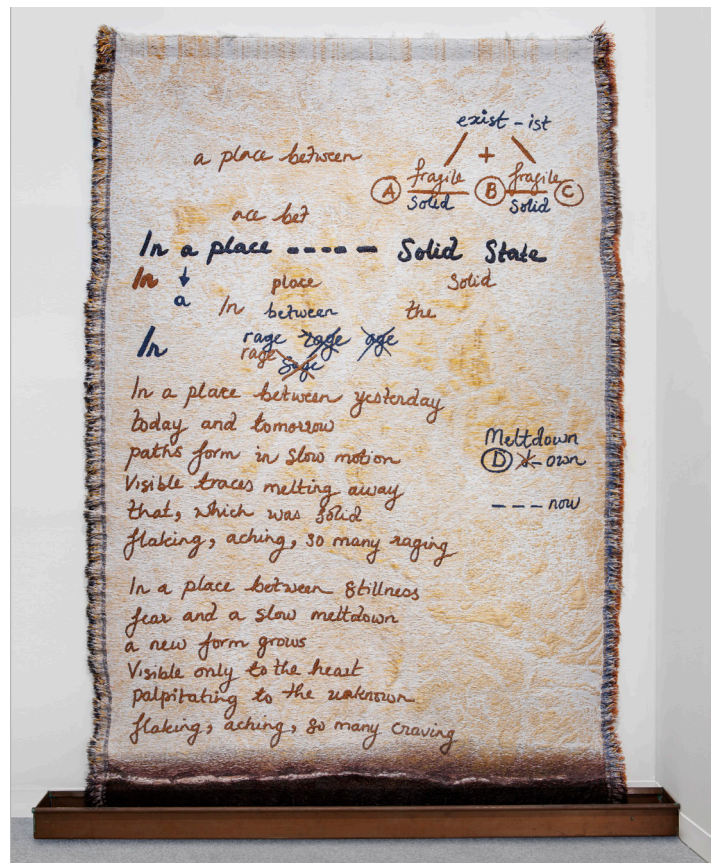 exist - ist
a place between
+
A fragile B fragile C
solid solid
ace bet
In a place ----- Solid State
In place Solid
a In between the
In rage rage age
rage Sage
In a place between yesterday
today and tomorrow
paths form in slow motion
Meltdown
Visible traces melting away
D own
that, which was solid
--- now
flaking, aching, so many raging
In a place between stillness
fear and a slow meltdown
a new form grows
Visible only to the heart
palpitating to the unknown
flaking, aching, so many craving